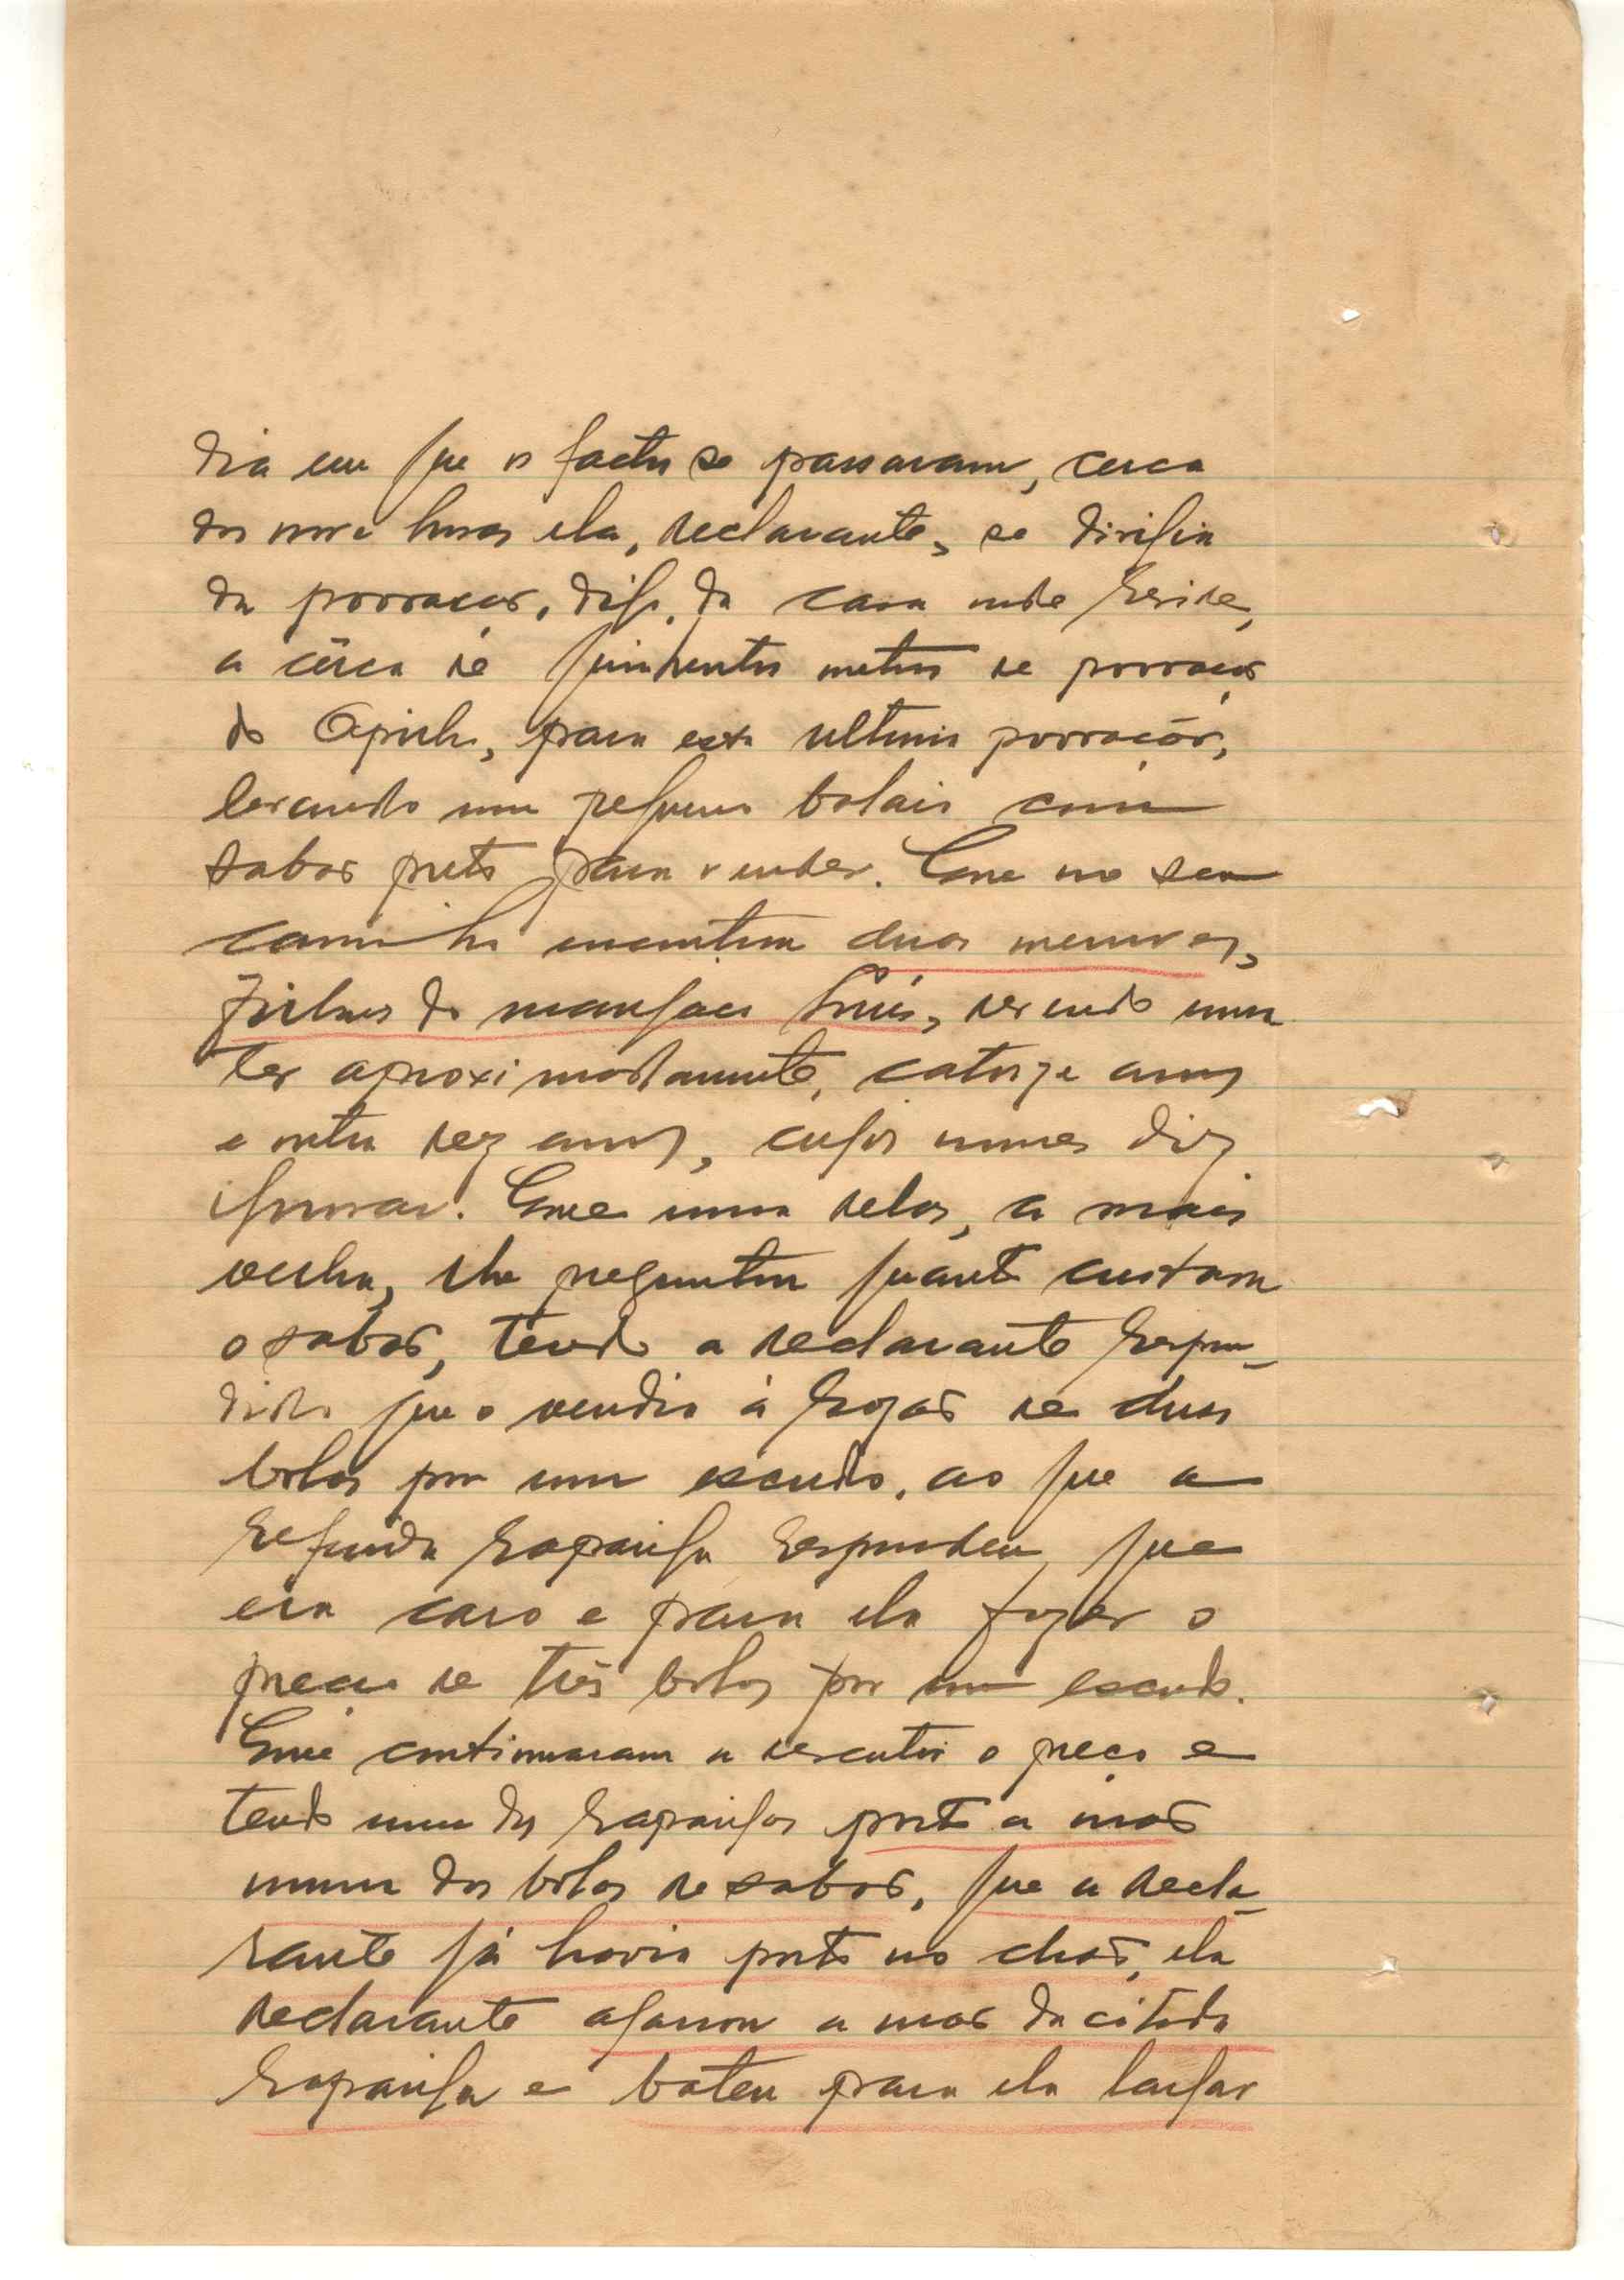 dia em que os factos se passaram, cerca
das nove horas ela, declarante, se dirigia
da povoação, digo, da casa onde reside,
a cêrca de quinhentos metros de povoação
de para esta ultima povoação,
levando um pequeno balaio com
sabão preto para vender. Que no seu
caminho encontrou duas meninas,
filhas do mancanha devendo uma
ter aproximadamente, catorze anos
e outra dez anos, cujos nomes diz
ignorar. Que uma delas, a mais
velha, lhe preguntou quanto custava
o sabão, tendo a declarante respon-
dido que o vendia à razão de duas
bolas por um escudo, ao que a
referida rapariga respondeu, que
era caro e para ela fazer o
preço de três bolas por um escudo.
Que continuaram a descutir o preço e
tendo uma das raparigas posto a mão
numa das bolas de sabão, que a decla-
rante já havia posto no chão, ela
declarante agarrou a mão da citada
rapariga e bateu para ela largar